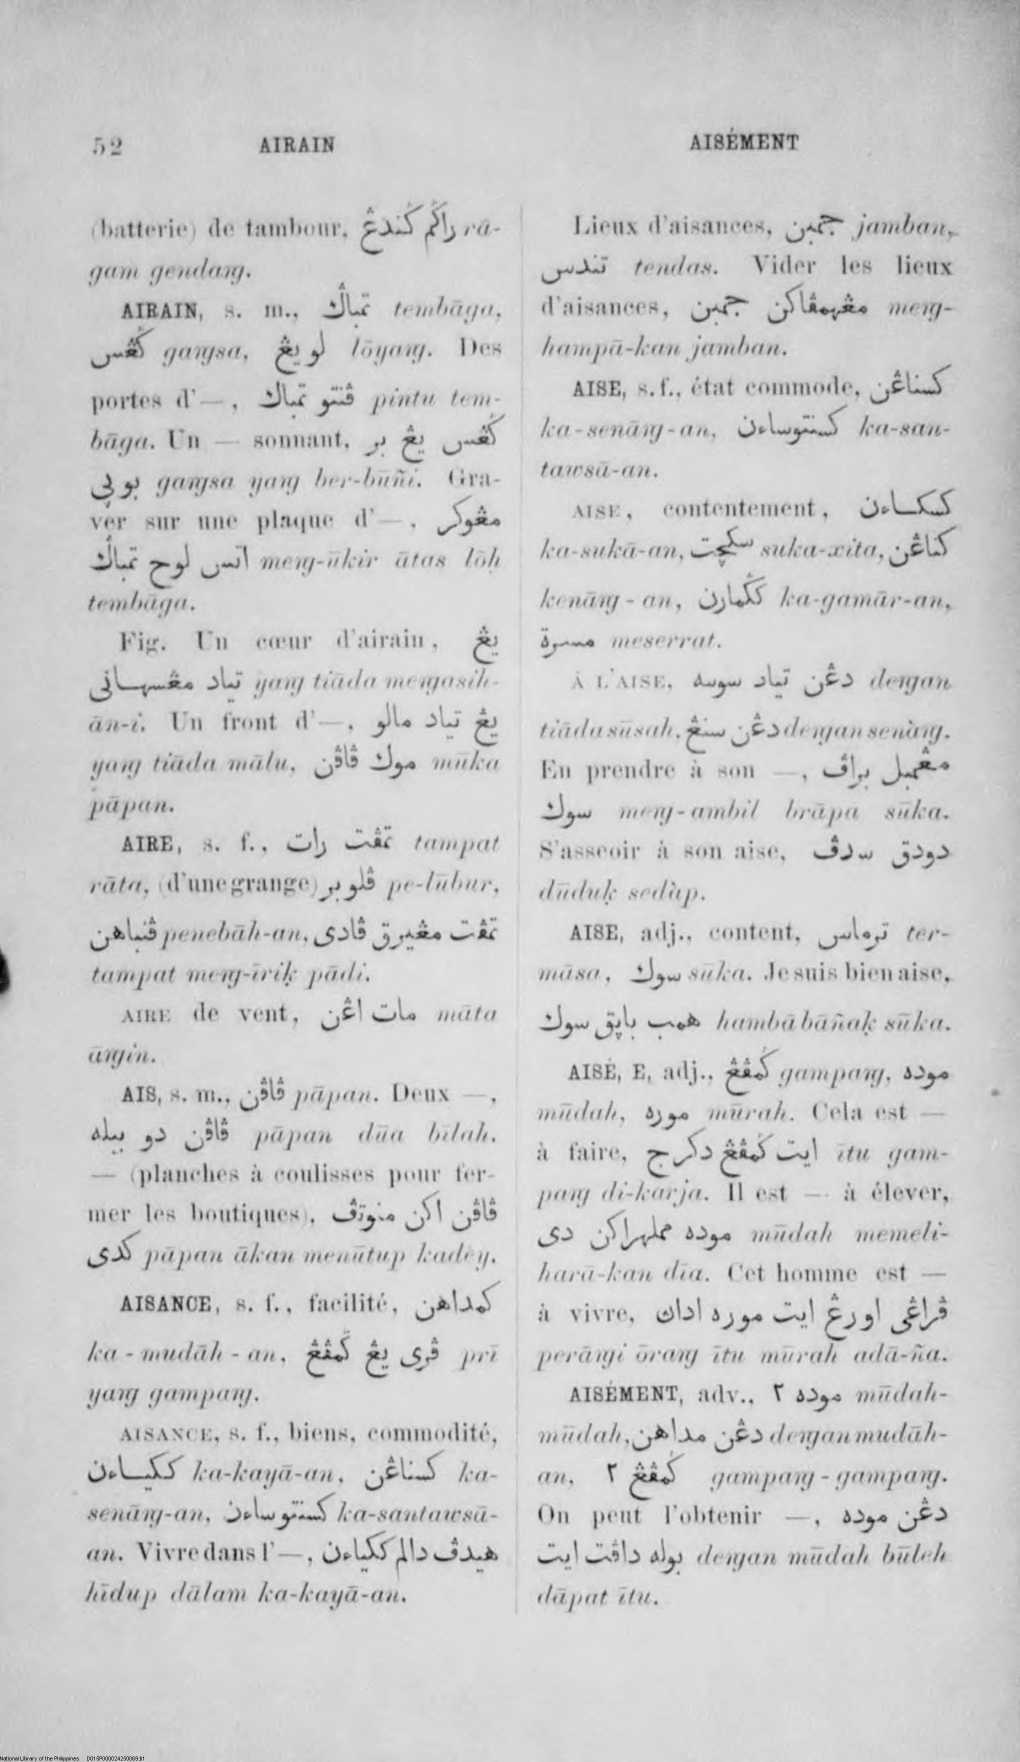 52 AIRAIN
AISÉMENT
(batterie) de tambour, راݢم ݢندڠ rā-
gam gendaŋ.
AIRAIN, s. m., تمباݢ tembāga,
ݢڠس gaŋsa, لويڠ lōyaŋ. Des
portes d'—, ڤنتو تمباݢ pintu tem-
bāga. Un — sonnant, ݢڠس يڠ بر
بوڽي gaŋsa yaŋ ber-būñi. Gra-
ver sur une plaque d'—, مڠوكر
اتس لوح تمباݢ meŋ-ūkir ātas lōḥ
tembāga.
Fig. Un cœur d'airain, يڠ
تياد مڠسهاني yaŋ tiāda meŋasih-
ān-i. Un front d'—, يڠ تياد مالو
yaŋ tiāda mālu, موك ڤاڤن mūka
pāpan.
AIRE, s. f., تمڤت رات tampat
rāta, (d'une grange) ڤلوبر pe-lūbur,
ڤنباهن penebāh-an, تمڤت مڠيرق ڤادي
tampat meŋ-īriḳ pādi.
AIRE de vent, مات اڠن māta
āŋin.
AIS, s. m., ڤاڤن pāpan. Deux —,
ڤاڤن دو بيله pāpan dūa bīlah.
— (planches à coulisses pour fer-
mer les boutiques), ڤاڤن اكن منوتڤ
كدي pāpan ākan menūtup kadey.
AISANCE, s. f., facilité, كمداهن
ka-mudāh-an, ڤري يڠ ݢمڤڠ prī
yaŋ gampaŋ.
AISANCE, s. f., biens, commodité,
ككياءن ka-kayā-an, كسناڠن ka-
senāŋ-an, كسنتوساءن ka-santawsā-
an. Vivre dans l'—, هيدڤ دالم ككياءن
hīdup dālam ka-kayā-an.
Lieux d'aisances, جمبن jamban,
تندس tendas. Vider les lieux
d'aisances, مڠهمڤاكن جمبن meŋ-
hampā-kan jamban.
AISE, s. f., état commode, كسناڠن
ka-senāŋ-an, كسنتوساءن ka-san-
tawsā-an.
AISE, contentement, كسكاءن
ka-sukā-an, سكچت suka-xita, كناڠن
kenāŋ-an, كݢمارن ka-gamār-an,
مسرة meserrat.
À L'AISE, دڠن تياد سوسه deŋan
tiāda sūsah, دڠن سنڠ deŋan senàŋ.
En prendre à son —, مڠمبل براڤ
سوك meŋ-ambil brāpa sūka.
S'asseoir à son aise, دودق سدڤ
dūduḳ sedàp.
AISE, adj., content, ترماس ter-
māsa, سوك sūka. Je suis bien aise,
همب باڽق سوك hambā bāñaḳ sūka.
AISÉ, E, adj., ݢمڤڠ gampaŋ, موده
mūdah, موره mūrah. Cela est —
à faire, ايت ݢمڤڠ دكرج ītu gam-
paŋ di-karja. Il est — à élever,
موده مملهراكن دي mūdah memeli-
harā-kan dīa. Cet homme est —
à vivre, ڤراڠي اورڠ ايت موره اداڽ
perāŋi ōraŋ ītu mūrah adā-ña.
AISÉMENT, adv., موده ٢ mūdah-
mūdah, دڠن مداهن deŋan mudāh-
an, ݢمڤڠ ٢ gampaŋ-gampaŋ.
On peut l'obtenir —, دڠن موده
بوله داڤت ايت deŋan mūdah būleh
dāpat ītu.
National Library of the Philippines